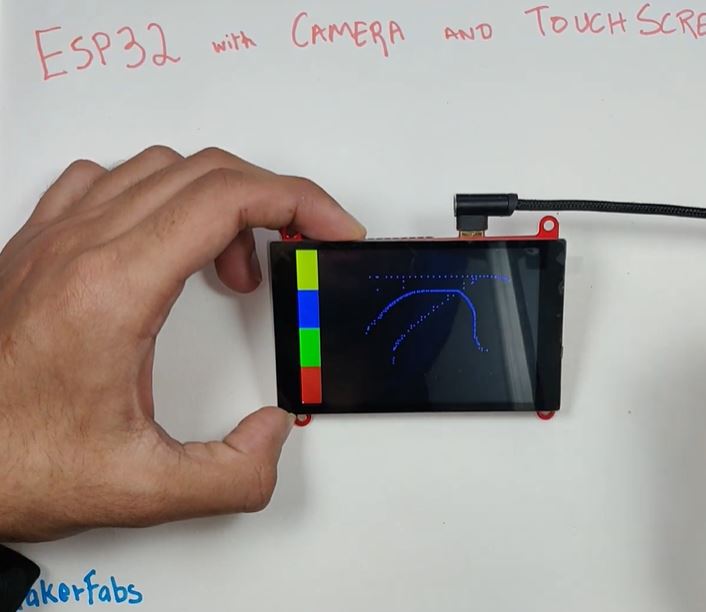 ESP32 with CAMERA AND TOUCH SCRE
akerfabs